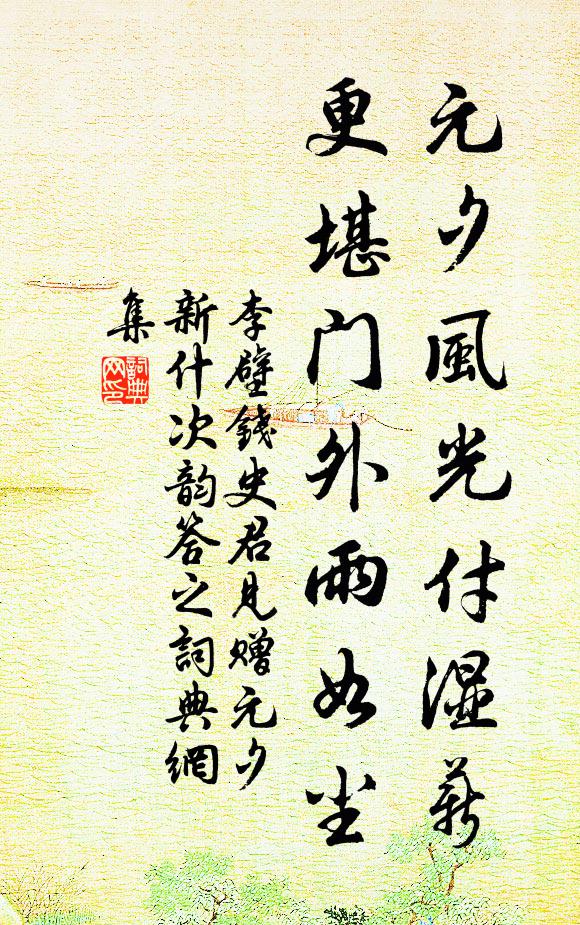 元夕風光付濕薪
更堪門外雨如塵
李壁錢史君見贈元夕
新什次韵答之詞典網
集
詞典
网印